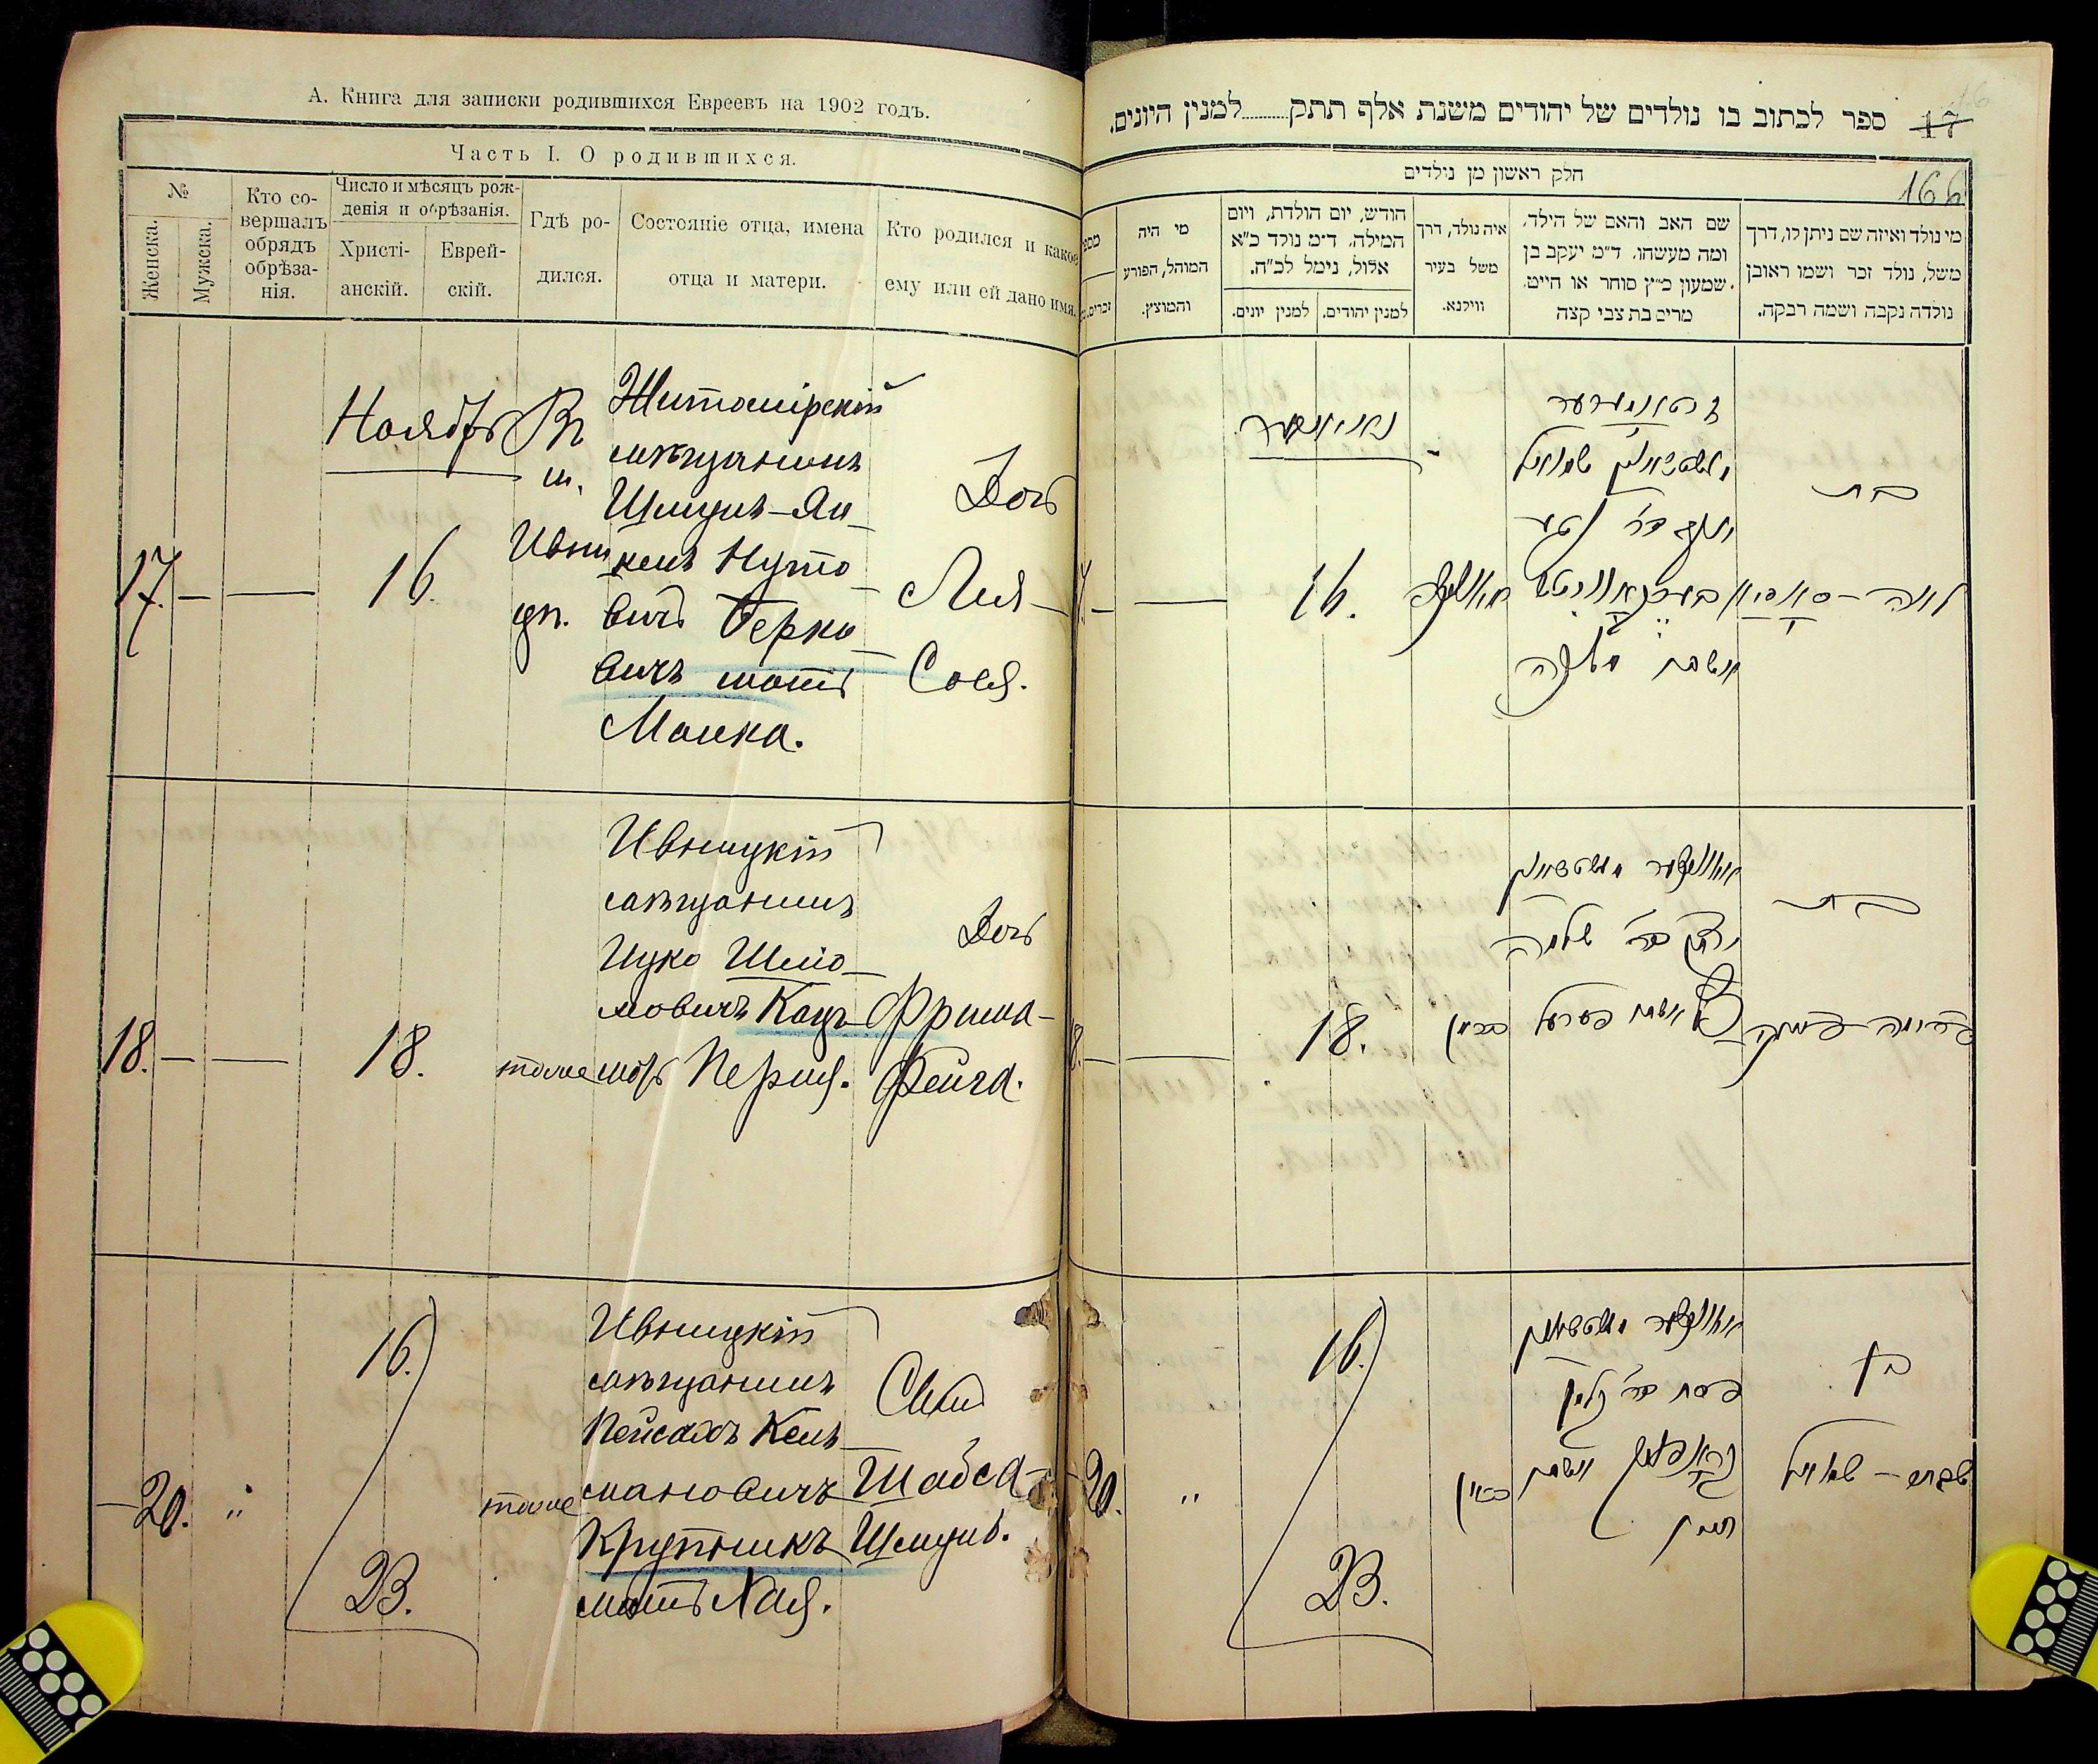 А. Книга для записки родившихся Евреевъ на 1902 годъ.
Часть I. О родившихся.
№
Женска.
Мужска.
Кто со-
вершалъ
обрядъ
обрѣза-
нія.
Число и мѣсяцъ рож-
денія и обрѣзанія.
Христі-
анскій.
Еврей-
скій.
Гдѣ ро-
дился.
Состояніе отца, имена
отца и матери.
Кто родился и какое
ему или ей дано имя.
17.
Ноябрь
16.
Въ
м.
Ивни
цѣ.
Житомірскій
мѣщанинъ
Шмуль-Ян
кель Нуто
вичъ Берко
вичъ мать
Малка.
Дочь
Лия-
Совя.
18.
18.
тоже
Ивницкій
мѣщанинъ
Ицко Шмо
мовичъ Кацъ
мать Перля.
Дочь
Фрима-
Фейга.
20.
"
16.
23.
тоже
Ивницкій
мѣщанинъ
Пейсахъ Кель
мановичъ
Крупникъ
мать Хая.
Сынъ
Шабса-
Шмуль.
17
166
ספר לכתוב בו נולדים של יהודים משנת אלף תתק..........למנין היונים.
חלק ראשון מן נולדים
מי נולד ואיזה שם ניתן לו, דרך
משל, נולד זכר ושמו ראובן
נולדה נקבה ושמה רבקה.
שם האב והאם של הילד,
ומה מעשהו. ד"מ יעקב בן
שמעון כ"ץ סוחר או חייט.
מרים בת צבי קצה
איה נולד, דרך
משל בעיר
ווילנא.
הודש, יום הולדת, ויום
המילה. ד"מ נולד כ"א
אלול, נימל לכ"ח.
למנין יהודים.
למנין יונים.
מי היה
המוהל, הפורע
והמוצץ.
זכרים.
בת
לאה-סאביא
זיטאמירער
שמואל
יעקב בר' נטע
בערקאוויטש
ואשתו מלכה
16.
בת
פרומה-פייגה
יצחק בר' שלמה
ואשתו פערל
18.
בן
שבתי-שמואל
פסח בר' קלמן
קרופניק ואשתו
חיה
16.
23.
20.
"